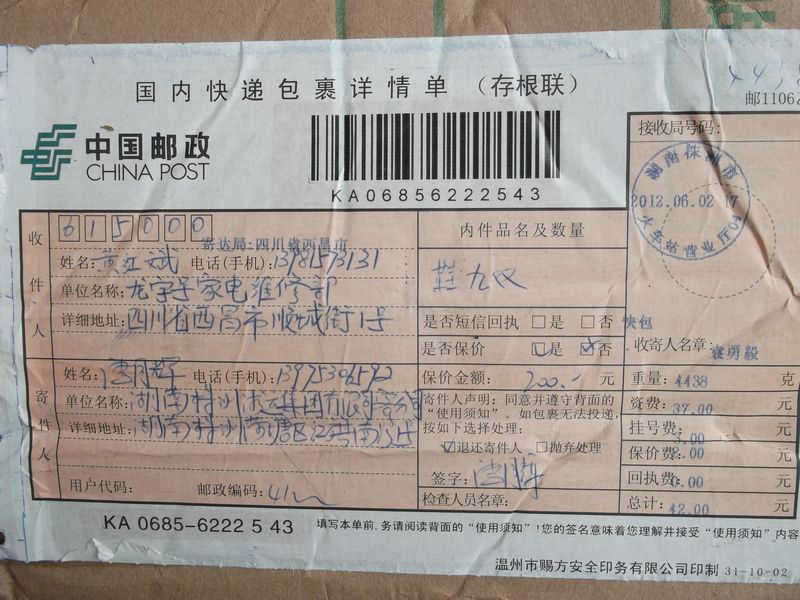 国内快递包裹详情单 (存根联)
邮1106
中国邮政
CHINA POST
KA06856222543
接收局号码:
湖南株洲市
2012.06.02 17
火车站营业厅
收件人
615000
寄达局:四川省西昌市
姓名: 电话(手机):
单位名称: 家电维修部
详细地址:四川省西昌市顺城街1号
内件品名及数量
鞋九双
是否短信回执 □是 □否 快包
是否保价 □是 ☑否
收寄人名章: 袁勇毅
寄件人
姓名: 电话(手机):13975306592
单位名称:
详细地址:
用户代码: 邮政编码:
保价金额: 200.- 元
寄件人声明:同意并遵守背面的
“使用须知”。如包裹无法投递,
按如下选择处理:
☑退还寄件人 □抛弃处理
签字:
检查人员名章:
重量: 4438 克
资费: 37.00 元
挂号费: 3.00 元
保价费: .00 元
回执费: .00 元
总计: 42.00 元
KA 0685-6222 5 43
填写本单前,务请阅读背面的“使用须知”!您的签名意味着您理解并接受“使用须知”内容
温州市赐方安全印务有限公司印制 31-10-02